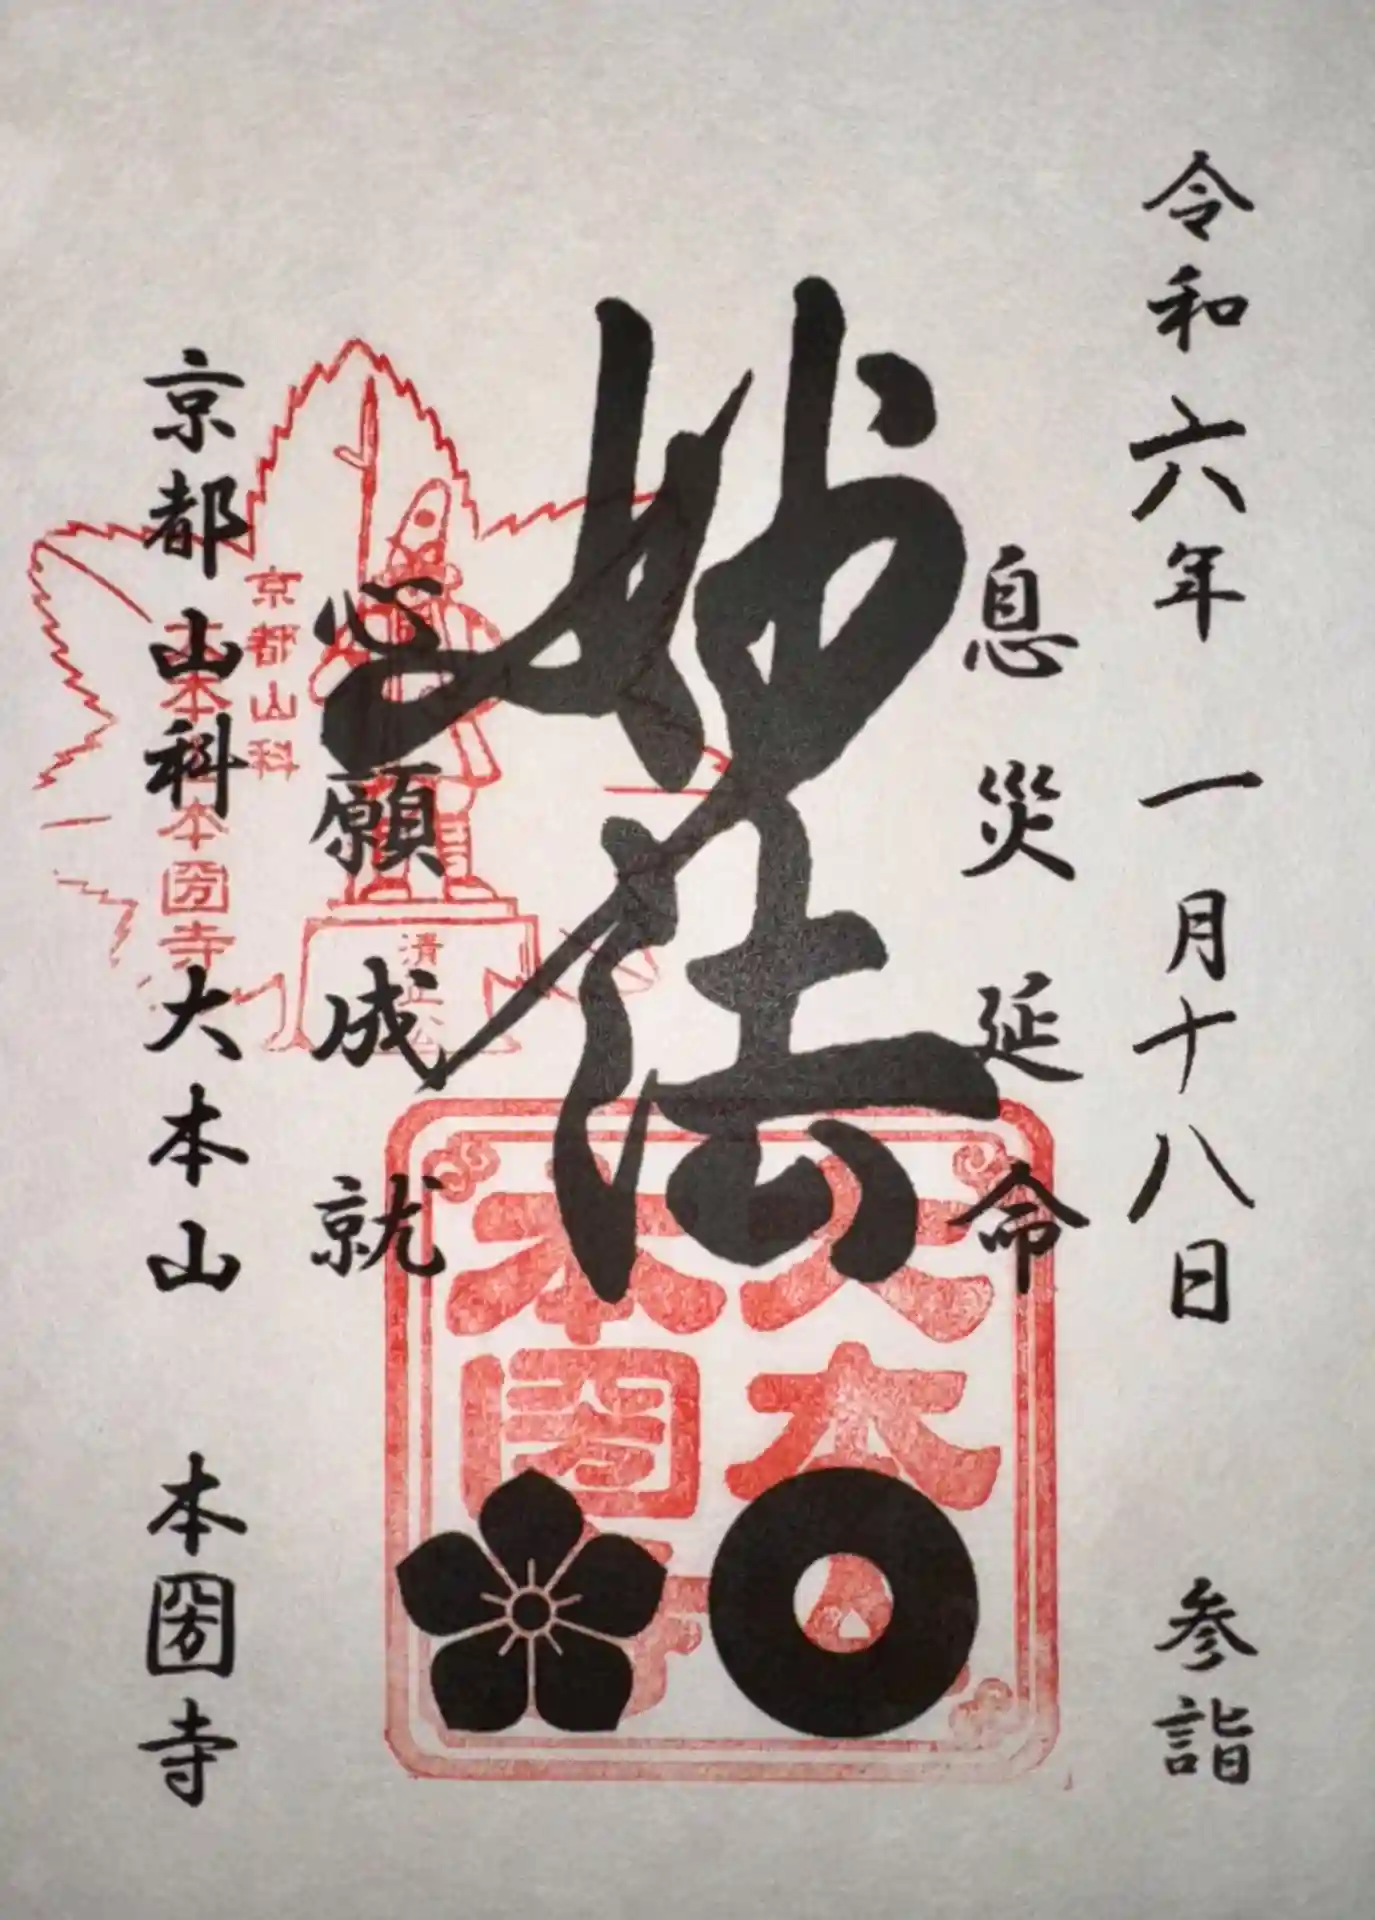 令和六年 一月十八日 参詣
息災延命
妙法
心願成就
京都山科 大本山 本圀寺
京都山科
大本山本圀寺
清正公
大本山
本圀寺